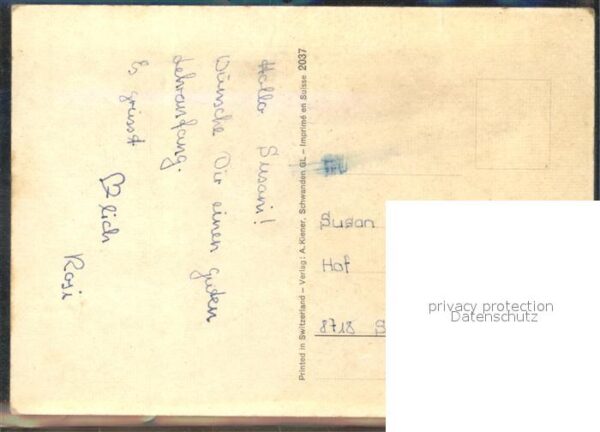 Hallo Susani!
Wünsche Dir einen guten
Lehranfang.
Es grüsst
♡lich
Rosi
Printed in Switzerland – Verlag: A. Kiener, Schwanden GL – Imprimé en Suisse 2037
Susan
Hof
8718 S
privacy protection
Datenschutz